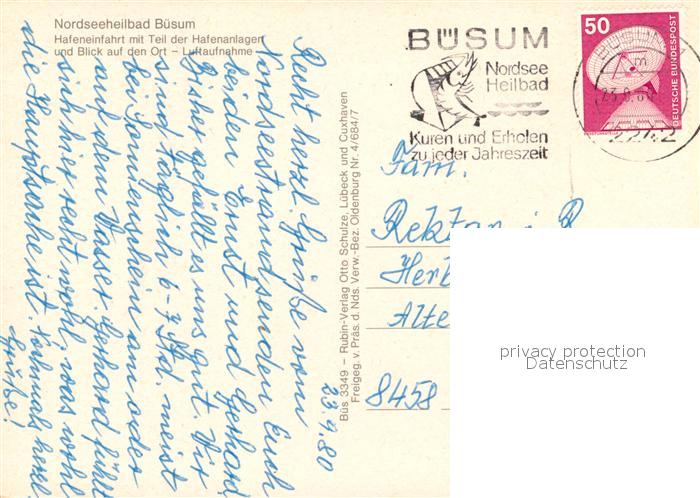 Nordseeheilbad Büsum
Hafeneinfahrt mit Teil der Hafenanlagen
und Blick auf den Ort – Luftaufnahme
23.9.80
Recht herzl. Grüße vom
Nordseestrand senden Euch
beiden Ernst und Gerhard
Bisher gefällt es uns gut. Wir
sind täglich 6-7 Std. meist
bei Sonnenschein am oder
auf dem Wasser. Gerhard fühlt
sich recht wohl, was wohl
die Hauptsache ist. Nochmals herzl.
Grüße!
Büs 3349 – Rubin-Verlag Otto Schulze, Lübeck und Cuxhaven
Freigeg. v. Präs. d. Nds. Verw.-Bez. Oldenburg Nr. 4/684/7
BÜSUM
Nordsee
Heilbad
Kuren und Erholen
zu jeder Jahreszeit
50
DEUTSCHE BUNDESPOST
2242
Fam.
Rektor i. R.
Herb
Alte
8458
privacy protection
Datenschutz